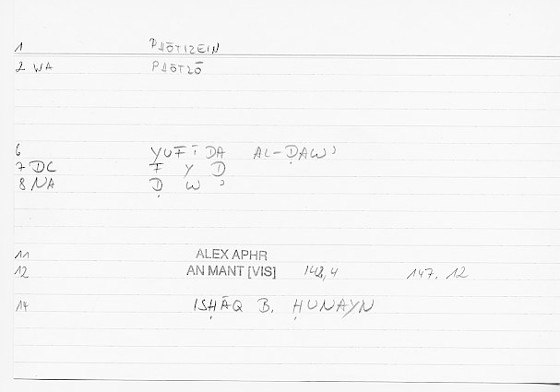 1 PHŌTIZEIN
2 WA PHŌTZŌ
6 YUFĪDA AL-ḌAWʾ
7 DC F Y D
8 NA Ḍ W ʾ
11 ALEX APHR
12 AN MANT [VIS] 142,4 147, 12
14 ISḤĀQ B. ḤUNAYN